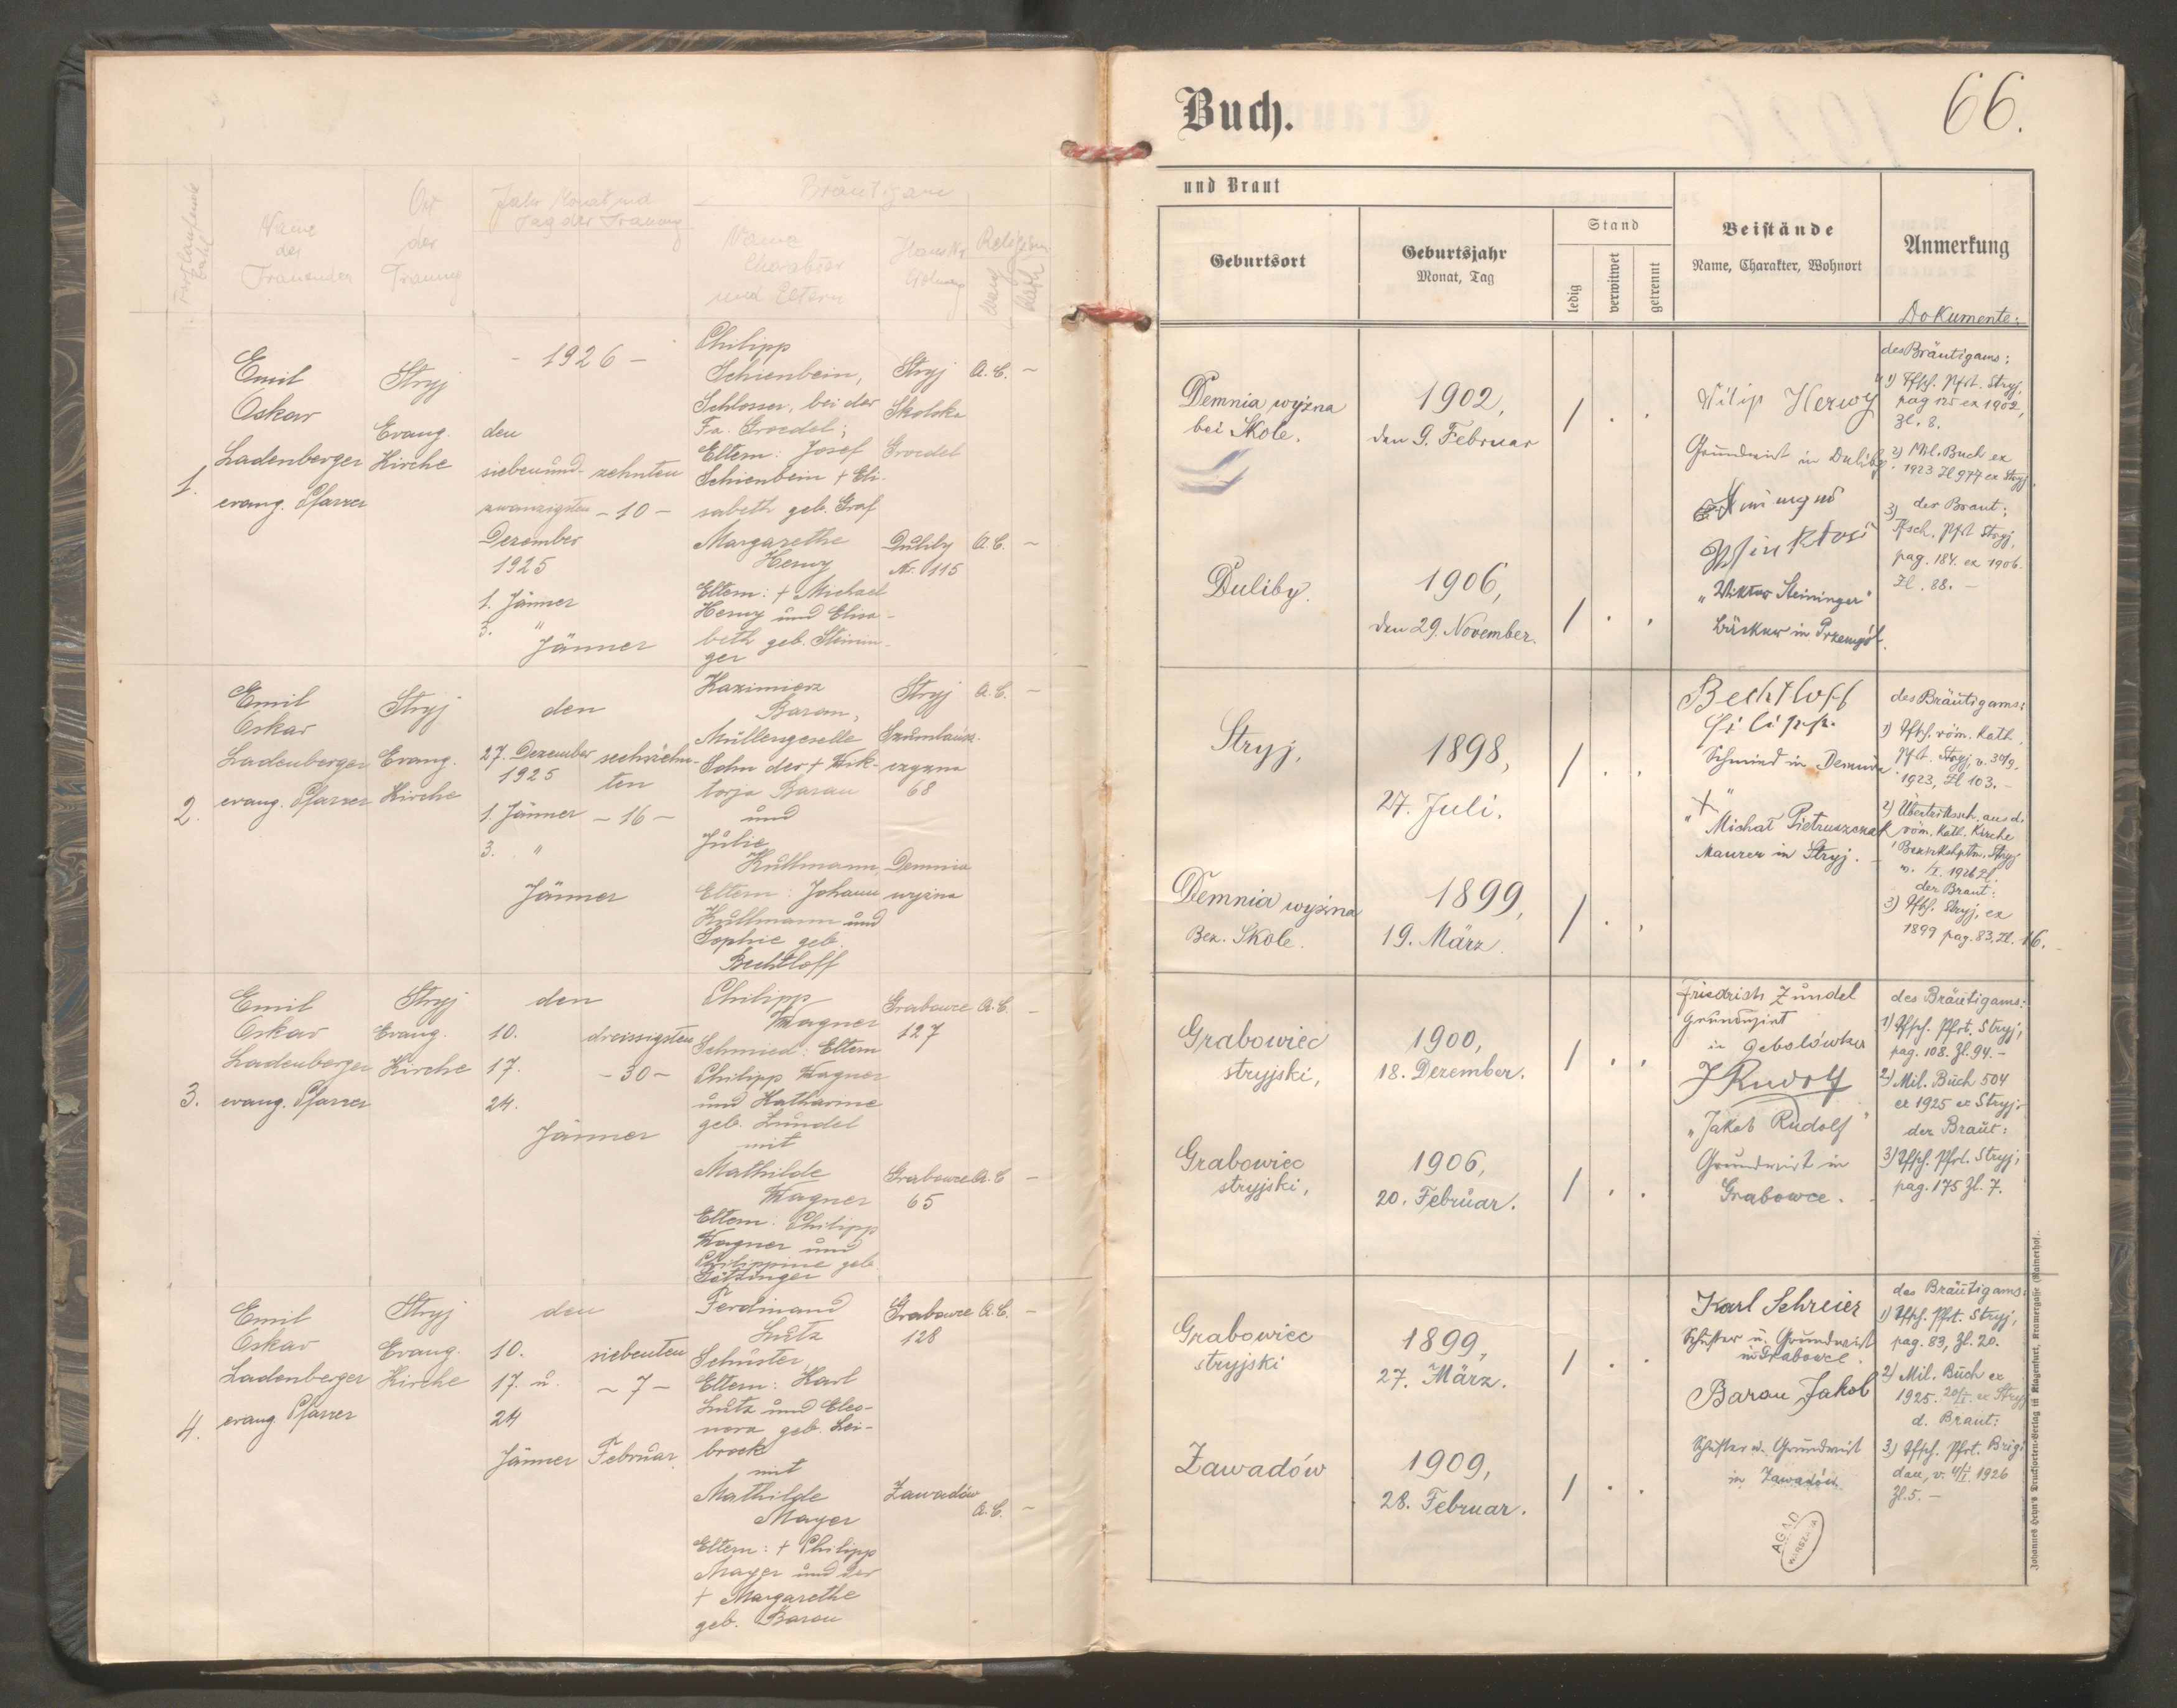 Fortlaufende
Zahl
Name
des
Trauenden
Ort
der
Trauung
Jahr Monat und
Tag der Trauung
Bräutigam
Name
Charakter
und Eltern
Haus Nr
Religion
evang
kath
1.
Emil
Oskar
Ladenberger
evang. Pfarrer
Stryj
Evang.
Kirche
- 1926 -
den
siebenund-
zwanzigsten
Dezember
1925
1. Jänner
3. "
zehnten
- 10 -
Jänner
Philipp
Schienbein,
Schlosser, bei der
Fa. Groedel;
Eltern: Josef
Schienbein + Eli-
sabeth geb. Graf
Margarethe
Herwy
Eltern: + Michael
Herwy und Elisa-
beth geb. Steinin-
ger
Stryj
Skolska
Groedel
Duliby
Nr. 115
A. C. -
A. C. -
2.
Emil
Oskar
Ladenberger
evang. Pfarrer
Stryj
Evang.
Kirche
den
27. Dezember
1925
1. Jänner
3. "
sechzehn-
ten
- 16 -
Jänner
Kazimierz
Baran,
Müllergeselle
Sohn der + Wik-
torja Baran
und
Julie
Kullmann,
Eltern: Johann
Kullmann und
Sophie geb.
Bechtloff
Stryj
68
Demnia
wyżna
A. C. -
3.
Emil
Oskar
Ladenberger
evang. Pfarrer
Stryj
Evang.
Kirche
den
10.
17.
24.
dreissigsten
- 30 -
Jänner
Philipp
Wagner
Schmied: Eltern
Philipp Wagner
und Katharine
geb. Zundel
mit
Mathilde
Wagner
Eltern: Philipp
Wagner und
Philippine geb.
Götzinger
Grabowce
127
Grabowce
65
A. C. -
A. C. -
4.
Emil
Oskar
Ladenberger
evang. Pfarrer
Stryj
Evang.
Kirche
den
10.
17. u.
24
Jänner
siebenten
- 7 -
Februar
Ferdinand
Lutz
Schuster,
Eltern: Karl
Lutz und Eleo-
nora geb. Lei-
brock
mit
Mathilde
Mayer
Eltern: + Philipp
Mayer und der
+ Margarethe
geb. Baran
Grabowce
128
Zawadów
A. C. -
A. C. -
Buch.
66.
und Braut
Geburtsort
Geburtsjahr
Monat, Tag
Stand
ledig
verwitwet
getrennt
Beistände
Name, Charakter, Wohnort
Anmerkung
Dokumente:
Demnia wyżna
bei Skole.
1902,
den 9. Februar
/ . .
Duliby.
1906,
den 29. November.
/ . .
Filip Herwy
Grundwirt in Duliby
"Wiktor Steininger"
Bäcker in Przemyśl.
des Bräutigams:
1) Tfsch. Pfrt. Stryj,
pag 125 ex 1902,
Zl. 8.
2) Mil. Buch ex
1923 Zl 977 ex Stryj.
der Braut:
3) Tfsch. Pfrt Stryj,
pag. 184. ex 1906.
Zl. 88. -
Stryj,
1898,
27. Juli.
/ . .
Demnia wyżna
Bez. Skole.
1899,
19. März.
/ . .
Bechtloff
Filipp.
Schmied in Demnia
Michał Pietruszczak
Maurer in Stryj.
des Bräutigams:
1) Tfsch. röm. kath.
Pfrt. Stryj, v. 30/9.
1923, Zl 103. -
2) Übertrittssch. aus d.
röm. kath. Kirche
Bezirkshptm. Stryj
der Braut:
3) Tfsch. Stryj, ex
1899 pag. 83, Zl. 16. -
Grabowiec
stryjski,
1900,
18. Dezember.
/ . .
Grabowiec
stryjski,
1906,
20. Februar.
/ . .
Friedrich Zundel
Grundwirt
in Gebolówka
J Rudolf
"Jakob Rudolf"
Grundwirt in
Grabowce.
des Bräutigams:
1) Tfsch. Pfrt. Stryj,
pag. 108. Zl. 94. -
2) Mil. Buch 504
ex 1925 ex Stryj.
der Braut:
3) Tfsch. Pfrt. Stryj,
pag. 175 Zl. 7.
Grabowiec
stryjski
1899,
27. März.
/ . .
Zawadów
1909,
28. Februar.
/ . .
Karl Schreier
Schuster u. Grundwirt
in Grabowce.
Baran Jakob
Schuster u. Grundwirt
in Zawadów
des Bräutigams:
1) Tfsch. Pfrt. Stryj,
pag. 83, Zl. 20.
2) Mil. Buch ex
1925. 20/I. ex Stryj
d. Braut:
3) Tfsch. Pfrt. Brigi-
dau, v. 4/I. 1926
Zl. 5. -
AGAD
WARSZAWA
Johannes Heyn's Drucksorten-Verlag in Klagenfurt, Kramergasse (Rainerhof).